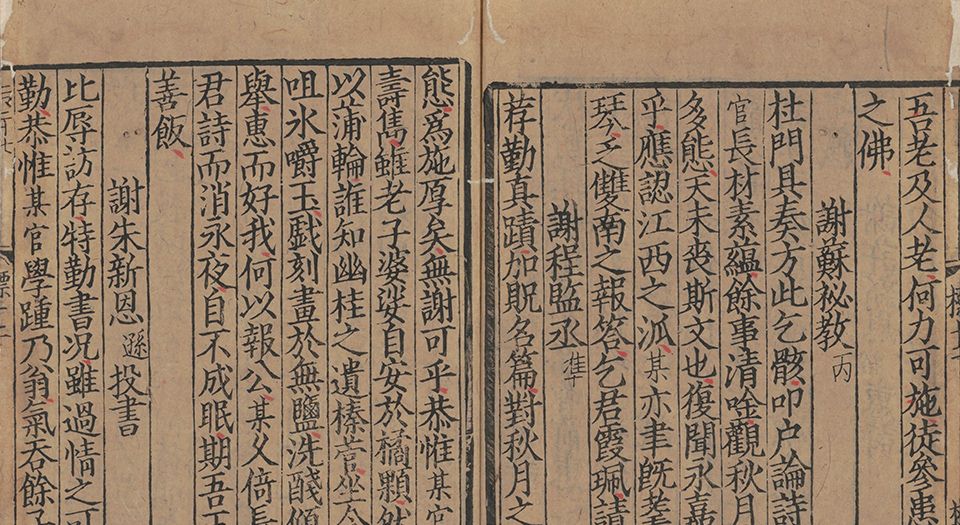 吾老及人老何力可施徒參患
之佛
謝蘇祕教 丙
杜門具奏方此乞骸叩户論詩
官長材素蘊餘事清唫觀秋月
多能天未喪斯文也復聞永嘉
乎應認江西之派某亦聿既耄
琹之雙南之報答乞君霞珮請
謝程監丞 準
荐勤真蹟加貺名篇對秋月之
熊爲施厚矣無謝可乎恭惟某官
壽雋雖老子婆娑自安於橘顆然
以蒲輪誰知幽桂之遺榛苦坐令
咀氷嚼玉戲刻畫於無鹽洗醆傾
舉惠而好我何以報公某乂倍長
君詩而消永夜自不成眠期吾丁
善飯
謝朱新恩 遜 投書
比辱訪存特勤書况雖過情之可
勤恭惟某官學踵乃翁氣吞餘子